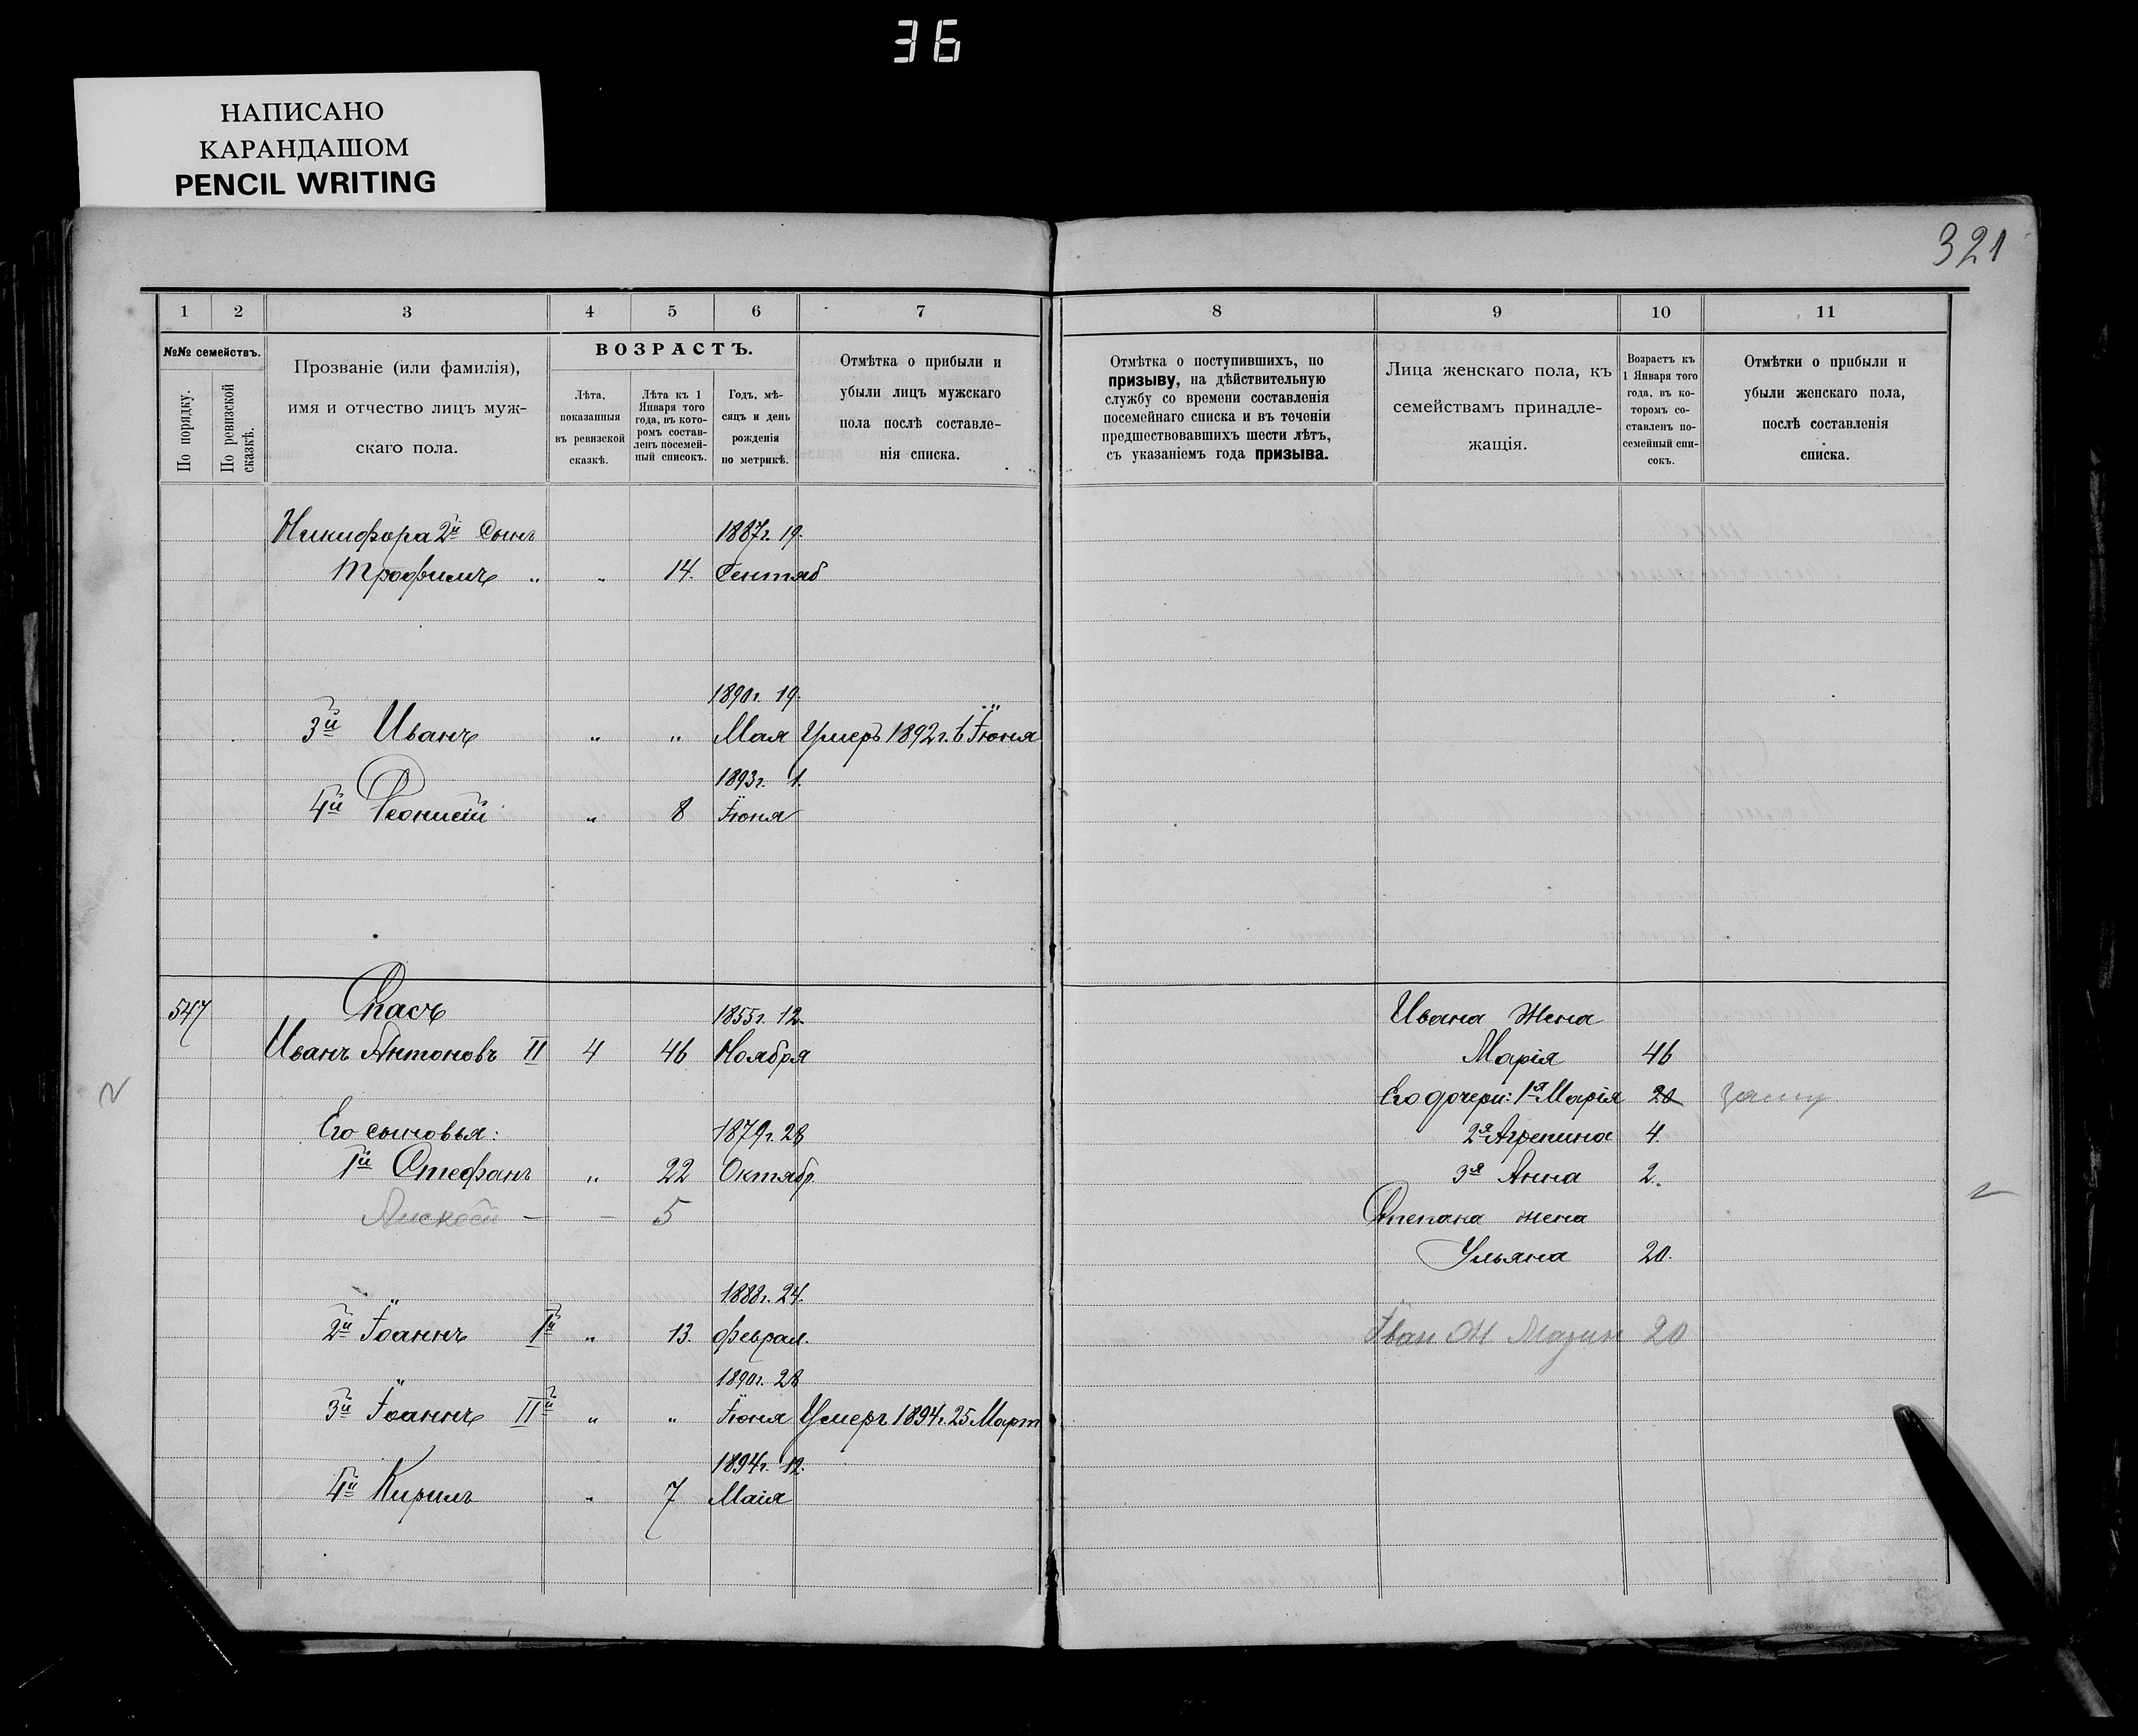 36
НАПИСАНО
КАРАНДАШОМ
PENCIL WRITING
321
1 2 3 4 5 6 7 8 9 10 11
№№ семействъ.
По порядку.
По ревизской сказкѣ.
Прозваніе (или фамилія),
имя и отчество лицъ муж-
скаго пола.
ВОЗРАСТЪ.
Лѣта,
показанныя
въ ревизской
сказкѣ.
Лѣта къ 1
Января того
года, въ кото-
ромъ состав-
ленъ посемей-
ный списокъ.
Годъ, мѣ-
сяцъ и день
рожденія
по метрикѣ.
Отмѣтка о прибыли и
убыли лицъ мужскаго
пола послѣ составле-
нія списка.
Отмѣтка о поступившихъ, по
призыву, на дѣйствительную
службу со времени составленія
посемейнаго списка и въ теченіи
предшествовавшихъ шести лѣтъ,
съ указаніемъ года призыва.
Лица женскаго пола, къ
семействамъ принадле-
жащія.
Возрастъ къ
1 Января того
года, въ ко-
торомъ со-
ставленъ по-
семейный спи-
сокъ.
Отмѣтки о прибыли и
убыли женскаго пола,
послѣ составленія
списка.
Никифора 2й Сынъ 1887г. 19.
Трофимъ " " 14. Сентяб
1890г. 19.
3й Иванъ " " Мая Умеръ 1892г. 6 Іюня
1893г. 1.
4й " 8 Іюня
547 1855г. 12. Ивана Жена
Иванъ Антоновъ II 4 46 Ноября Марія 46
Его дочери: 1я Марія 20
Его сыновья: 1879г. 28 2я Агрепина 4
1й Стефанъ " 22 Октябр. 3я Анна 2.
— — 5 Степана жена
Ульяна 20.
1888г. 24.
2й Іоаннъ Iй " 13. феврал. 20
1890г. 28
3й Іоаннъ IIй " " Іюня Умеръ 1894г. 25 Март
1894г. 12.
4й Кирилъ " 7 Маія